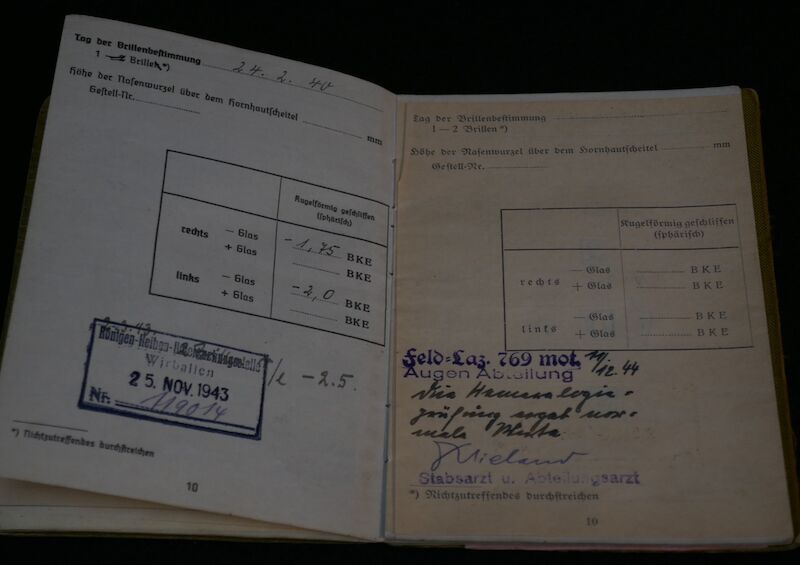 Tag der Brillenbestimmung 24. 2. 40
1 — 2 Brillen*)
Höhe der Nasenwurzel über dem Hornhautscheitel mm
Gestell-Nr.
Kugelförmig geschliffen
(sphärisch)
rechts — Glas - 1,75 BKE
+ Glas BKE
links — Glas - 2,0 BKE
+ Glas BKE
- 2.5.
Wirballen
25. NOV. 1943
Nr. 119014
*) Nichtzutreffendes durchstreichen
10
Tag der Brillenbestimmung
1 — 2 Brillen*)
Höhe der Nasenwurzel über dem Hornhautscheitel mm
Gestell-Nr.
Kugelförmig geschliffen
(sphärisch)
rechts — Glas BKE
+ Glas BKE
— Glas BKE
links + Glas BKE
Feld-Laz. 769 mot. 12.44
Augen Abteilung
prüfung ergab nor-
male Werte
Stabsarzt u. Abteilungsarzt
*) Nichtzutreffendes durchstreichen
10